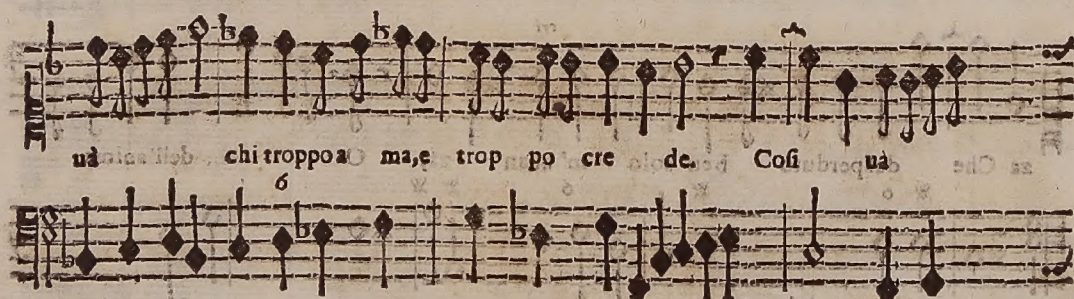 uà chi troppo a ma,e trop po cre de. Cosi uà
6